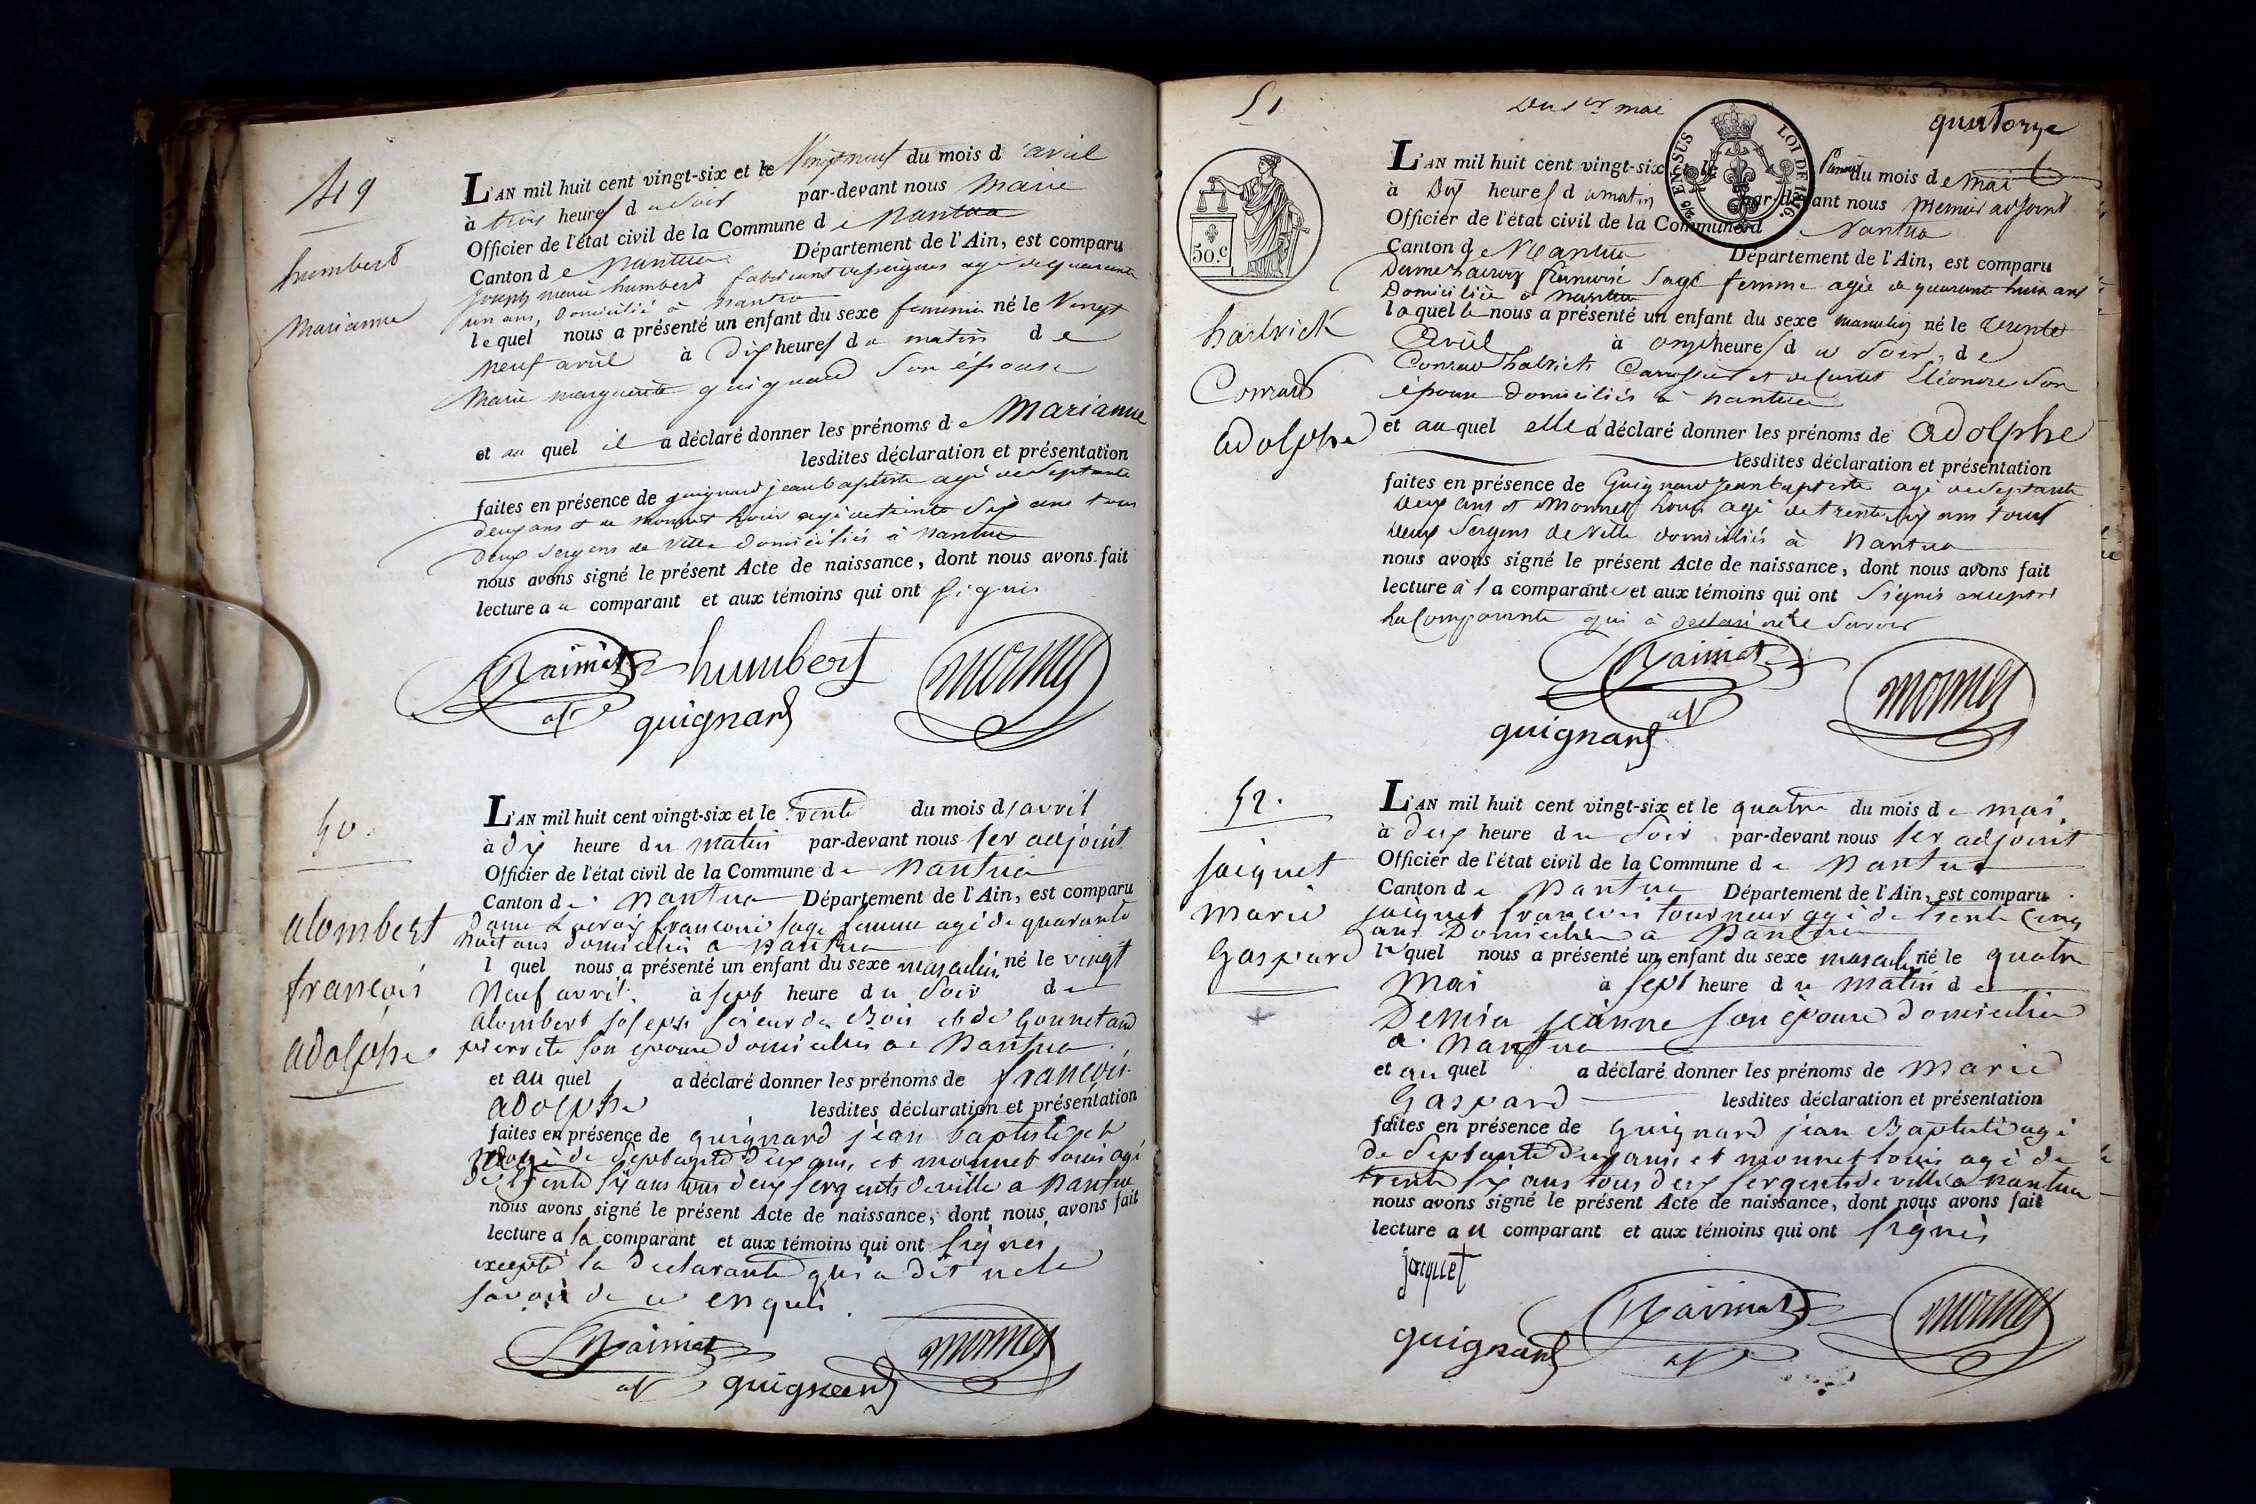 49
humbert
marianne
L'AN mil huit cent vingt-six et le Vingt neuf du mois d'avril
à trois heures du Soir par-devant nous Maire
Officier de l'état civil de la Commune de Nantua
Canton de Nantua Département de l'Ain, est comparu
joseph marie humbert fabricant de peignes agé de quarante
un ans, domicilié à Nantua
lequel nous a présenté un enfant du sexe feminin né le Vingt
neuf avril à Dix heures du matin de
Marie marguerite guignard Son épouse
et au quel il a déclaré donner les prénoms de Marianne
lesdites déclaration et présentation
faites en présence de guignard jean baptiste agé de Septante
deux ans et de monnet Louis agé de trente Six ans tous
deux Sergens de Ville domiciliés à Nantua
nous avons signé le présent Acte de naissance, dont nous avons fait
lecture au comparant et aux témoins qui ont Signés
humbert
guignard
monnet
50.
alombert
françois
adolphe
L'AN mil huit cent vingt-six et le trente du mois d'avril
à dix heure du matin par-devant nous 1er adjoint
Officier de l'état civil de la Commune de Nantua
Canton de Nantua Département de l'Ain, est comparu
Dame françoise sage femme agé de quarante
huit ans domiciliée a Nantua
l quel nous a présenté un enfant du sexe masculin né le vingt
Neuf avril à sept heure du Soir de
alombert joseph scieur de Bois et de
pierrete son epouse domiciliés a Nantua
et au quel a déclaré donner les prénoms de françois
adolphe lesdites déclaration et présentation
faites en présence de guignard jean baptiste
agé de Septante Deux ans, et monnet louis agé
de trente six ans tous deux sergents de ville a Nantua
nous avons signé le présent Acte de naissance, dont nous avons fait
lecture a la comparant et aux témoins qui ont signés
excepté la declarante qui a dit ne le
savoir de ce enquis.
guignard
monnet
51
Du 1er mai
quatorze
EN SUS
LOI DE 1816.
50.c
hadrich
Conrard
adolphe
L'AN mil huit cent vingt-six et le Premier du mois de Mai
à Dix heures du matin par-devant nous premier adjoint
Officier de l'état civil de la Commune d Nantua
Canton de Nantua Département de l'Ain, est comparu
Dame françoise Sage femme agée de quarante huit ans
Domiciliée à Nantua
laquelle nous a présenté un enfant du sexe masculin né le trente
Avril à onze heures du Soir, de
Conrard Carrossier et Eléonore Son
épouse domiciliés à Nantua
et au quel elle a déclaré donner les prénoms de Adolphe
lesdites déclaration et présentation
faites en présence de Guignard Jean Baptiste agé de Septante
deux ans et Monnet Louis agé de trente Six ans tous
deux Sergens de Ville domiciliés à Nantua
nous avons signé le présent Acte de naissance, dont nous avons fait
lecture à la comparante et aux témoins qui ont Signés excepté
La Comparante qui à déclaré ne le Savoir
guignard
monnet
52.
jaiquet
Marie
Gaspard
L'AN mil huit cent vingt-six et le quatre du mois de mai
à deux heure du Soir par-devant nous 1er adjoint
Officier de l'état civil de la Commune de Nantua
Canton de Nantua Département de l'Ain, est comparu
jaiquet françois tourneur agé de trente Cinq
ans Domicilié a Nantua
lequel nous a présenté un enfant du sexe masculin né le quatre
Mai à sept heure du matin de
jeanne son epouse domiciliée
a Nantua
et au quel a déclaré donner les prénoms de Marie
Gaspard lesdites déclaration et présentation
faites en présence de Guignard jean Baptiste agé
de Septante Deux ans, et monnet louis agé de
trente six ans tous deux sergents de ville a Nantua
nous avons signé le présent Acte de naissance, dont nous avons fait
lecture au comparant et aux témoins qui ont signés
jacquet
guignard
monnet